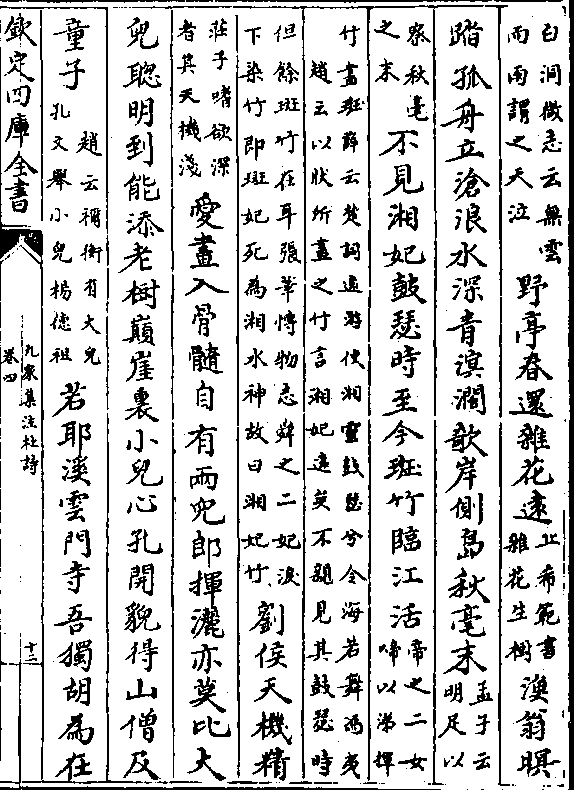 白洞微志云無雲
而雨謂之天泣
野亭春還雜花遠
丘希範書
雜花生樹
漁翁暝
踏孤舟立滄浪水深青溟闊欹岸側島秋毫末
孟子云
明足以
察秋毫
之末
不見湘妃鼓瑟時至今斑竹臨江活
帝之二女
啼以涕揮
竹盡斑薛云楚詞遠游使湘靈鼓瑟兮令海若舞馮夷
趙云以狀所畫之竹言湘妃遠矣不親見其鼓瑟時
但餘斑竹在耳張華博物志舜之二妃淚
下染竹即斑妃死為湘水神故曰湘妃竹
劉侯天機精
莊子嗜欲深
者其天機淺
愛畫入骨髓自有兩兒郎揮灑亦莫比大
兒聰明到能添老樹巔崖裏小兒心孔開貌得山僧及
童子
趙云禰衡有大兒
孔文舉小兒楊德祖
若耶溪雲門寺吾獨胡為在
欽定四庫全書
九家集注杜詩
卷四
十二